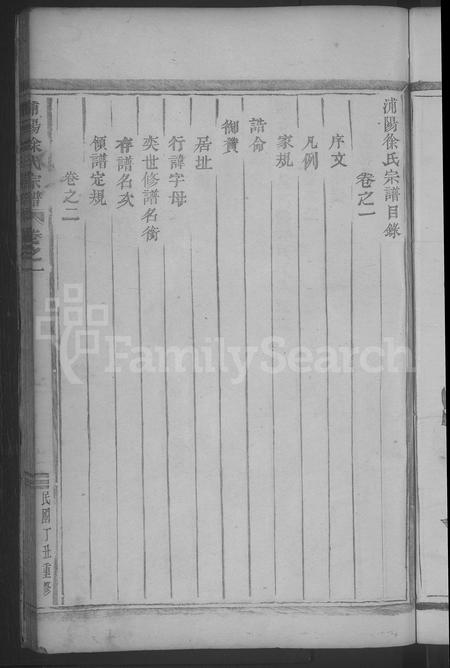 浦陽徐氏宗譜目錄
卷之一
序文
凡例
家規
誥命
御贊
居址
行諱字母
奕世修譜名銜
存譜名次
領譜定規
卷之二
浦陽徐氏宗譜
卷之一
民國丁丑重修
FamilySearch